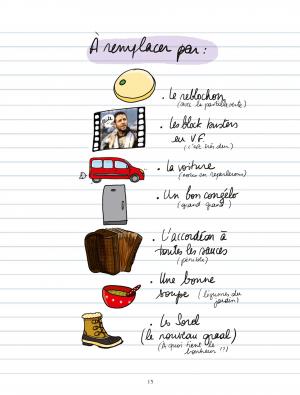 À remplacer par :
. Le reblochon
(avec la pastille verte)
. Les block busters
en V.F.
(c'est très dur)
. La voiture
(nous en reparlerons)
. Un bon congélo
(grand grand)
. L'accordéon à
toutes les sauces
(pénible)
. Une bonne
soupe (légumes du
jardin)
. Les Sorel
(le nouveau graal)
(À quoi tient le
bonheur ??)
15